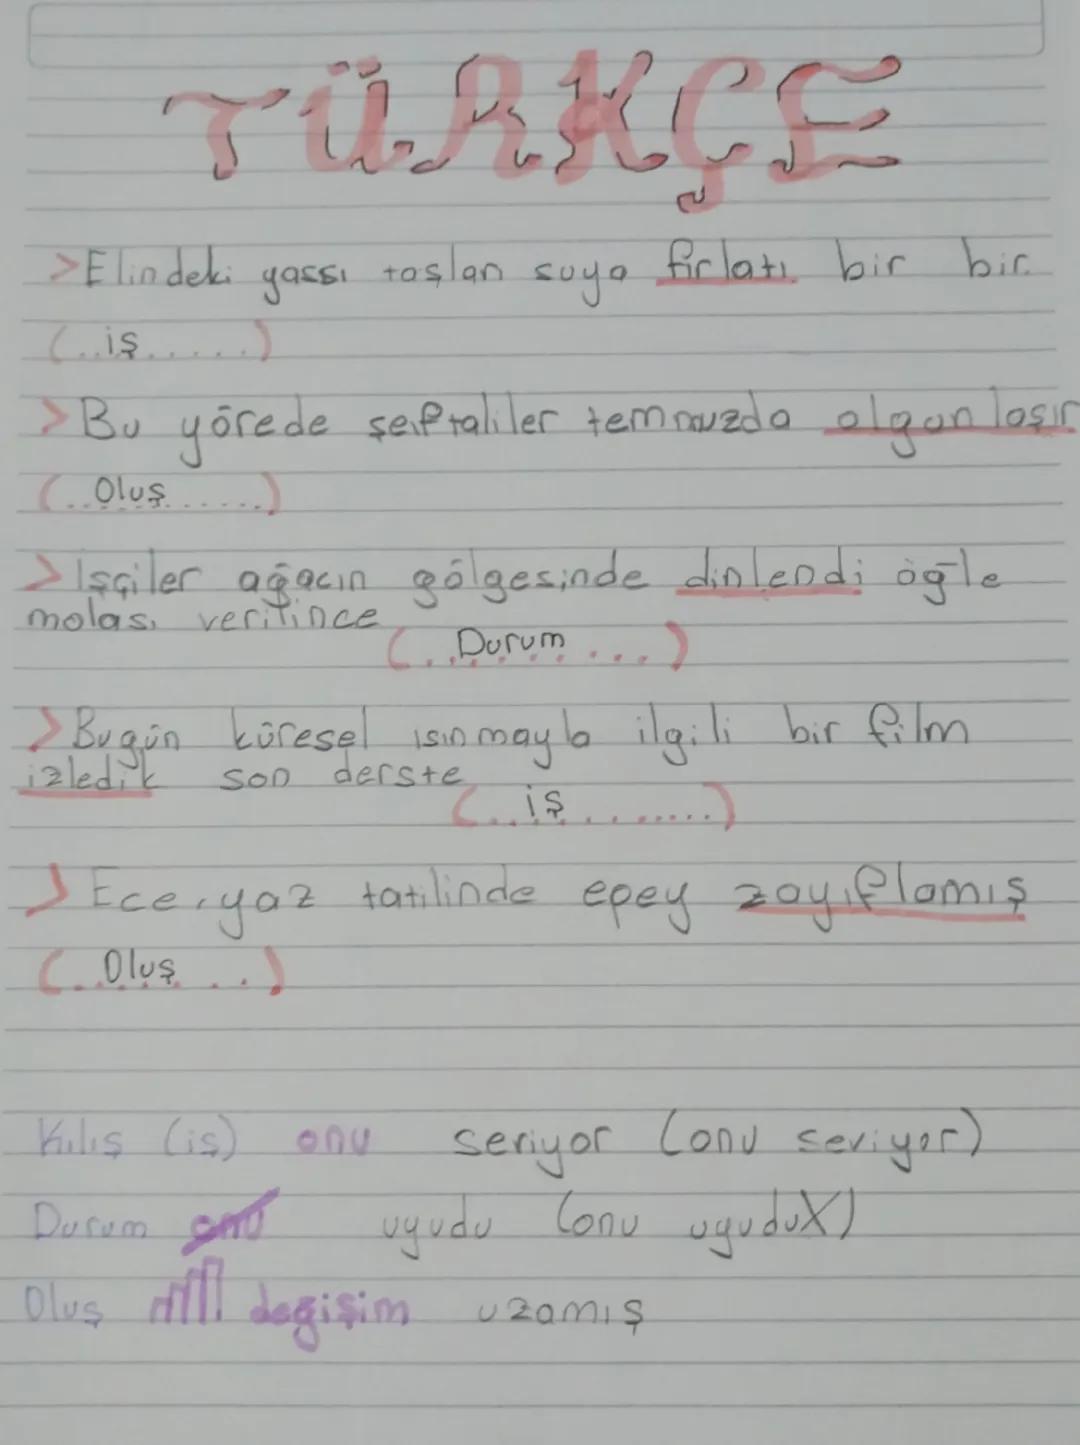 TÜRKÇE
>Elindeki yassı taşları suya fırlatı bir bir
(..iş.....)
>Bu yörede şeftaliler temmuzda olgunlaşır
(..Oluş......)
>İşçiler ağacın gölgesinde dinlendi öğle
molası verilince
(..Durum...)
>Bugün küresel ısınmayla ilgili bir film
izledik son derste
(..iş.......)
>Ece, yaz tatilinde epey zayıflamış
(..Oluş...)
Kılış (iş) onu seriyor (onu seviyor)
Durum onu uyudu (onu uyuduX)
Oluş değişim uzamış